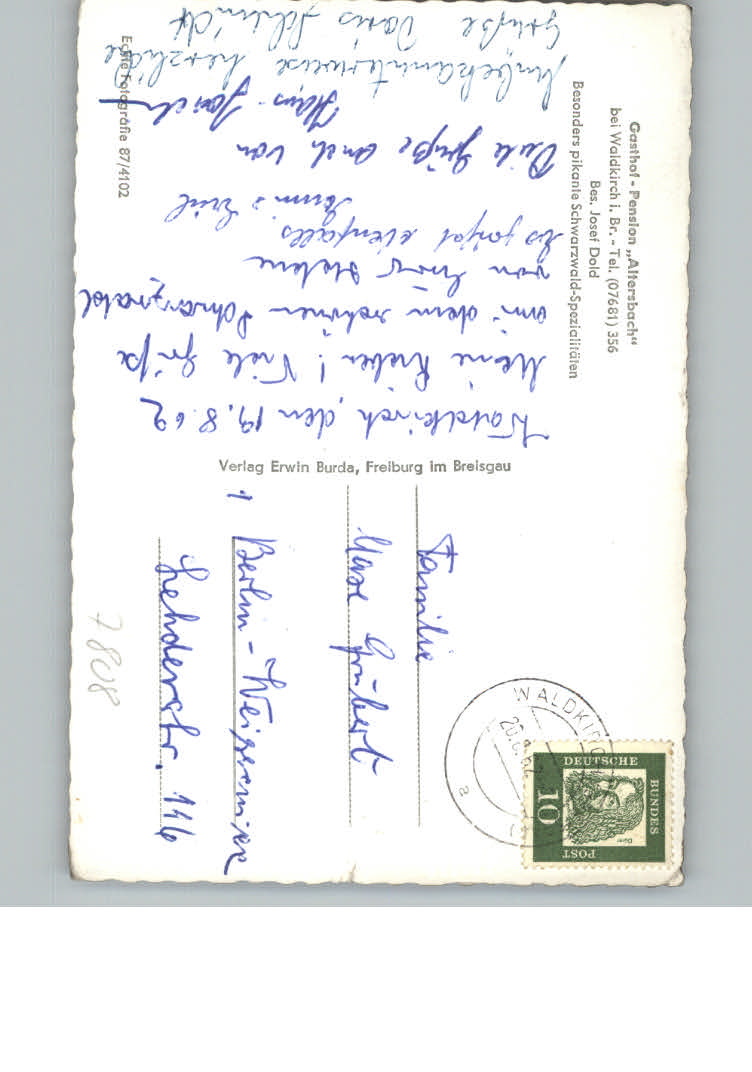 Gasthof - Pension „Altersbach“
bei Waldkirch i. Br. - Tel. (07681) 356
Bes. Josef Dold
Besonders pikante Schwarzwald-Spezialitäten
Waldkirch, den 19.8.62
Meine Lieben! Viele Grüße
aus dem schönen Schwarzwald
von Helene
Es ebenfalls
Viele Grüße auch von
Hans
Unbekannterweise herzliche
Grüße Doris Schmidt
Echte Fotografie 87/4102
Verlag Erwin Burda, Freiburg im Breisgau
Familie
Max Grübert
1 Berlin - Weissensee
Lehderstr. 116
7808
WALDKIRCH
20.8.62
a
DEUTSCHE
BUNDES
POST
10
Dürer